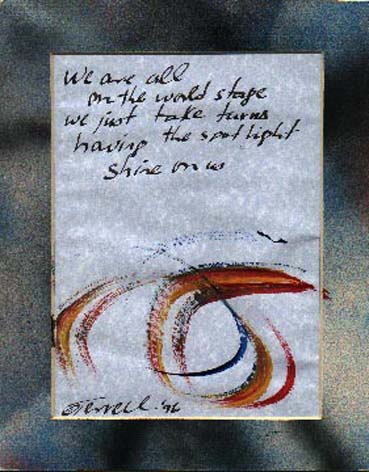 We are all
on the world stage
we just take turns
having the spotlight
shine on us
©Terrell '96